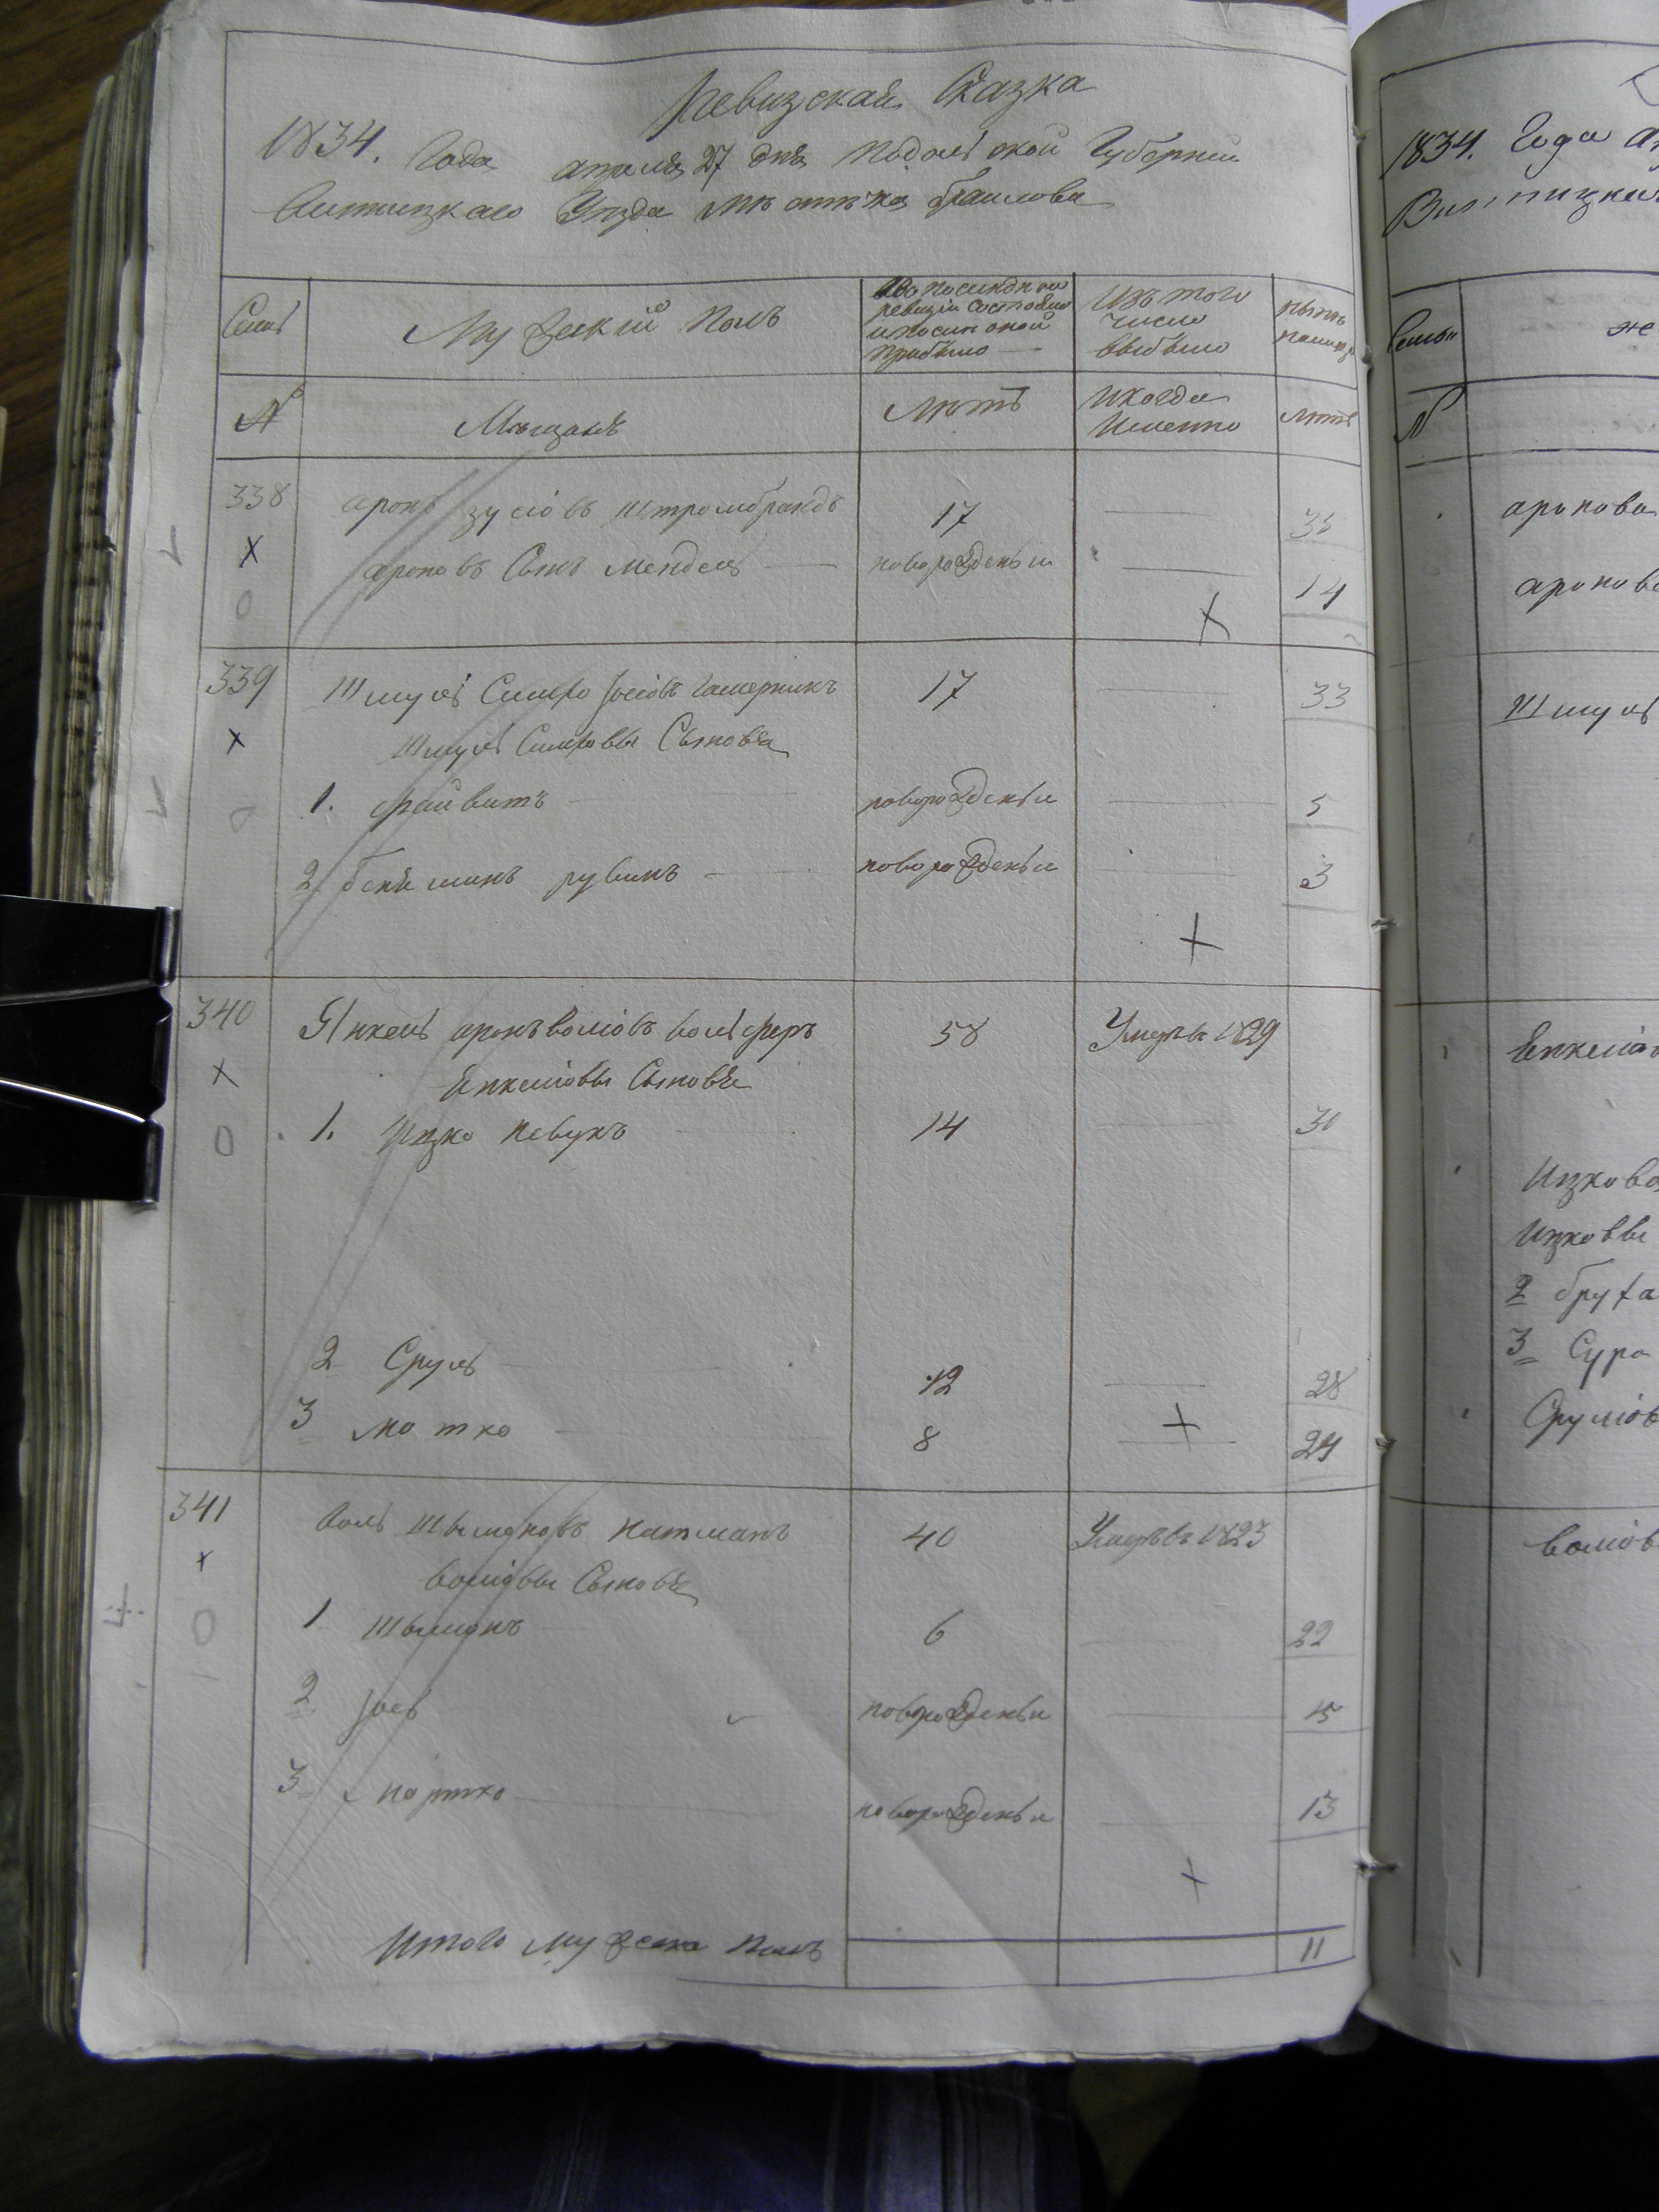 Ревизская Сказка
1834. Года апреля 27 дня Подольской Губернии
Винницкаго Уезда местечка браилова
Семьи
Мужеский Полъ
По последней ревизіи состояло и после оной прибыло
Изъ того число выбыло
ныне налицо
№
Мещане
Летъ
Когда Именно
Летъ
338 аронъ зусіовъ Штромбрандъ 17 33
ароновъ Сынъ Мендель новорожденъи 14
339 Шмуль Симхо Іосіовъ 17 33
Шмуль Симховы Сыновя
1. файвишъ новорожденъи 5
2 бениминъ рувинъ новорожденъи 3
340 Янкель аронъ воліовъ 58 Умеръ въ 1829
Енкеліовы Сыновя
1. Ицко 14 30
2 Сруль 12 28
3 мотко 8 24
341 Воль Шымоновъ 40 Умеръ въ 1823
воліовы Сыновя
1 Шымонъ 6 22
2 Іось новорожденъи 15
3 новорожденъи 13
Итого мужеска полъ 11
1834. Года
Винницкаго
Семьи
№
аронова
Шмуль
Енкеліов
Ицкова
Ицковы
2 бруха
3 Сура
Сруліов
воліов